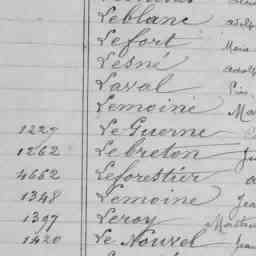 Leblanc
Lefort Marie
Lesné
Laval
Lemoine
1227 Le Guerne
1262 Lebreton
4662 Leforestier
1348 Lemoine
1397 Leroy
1420 Le Nouvel